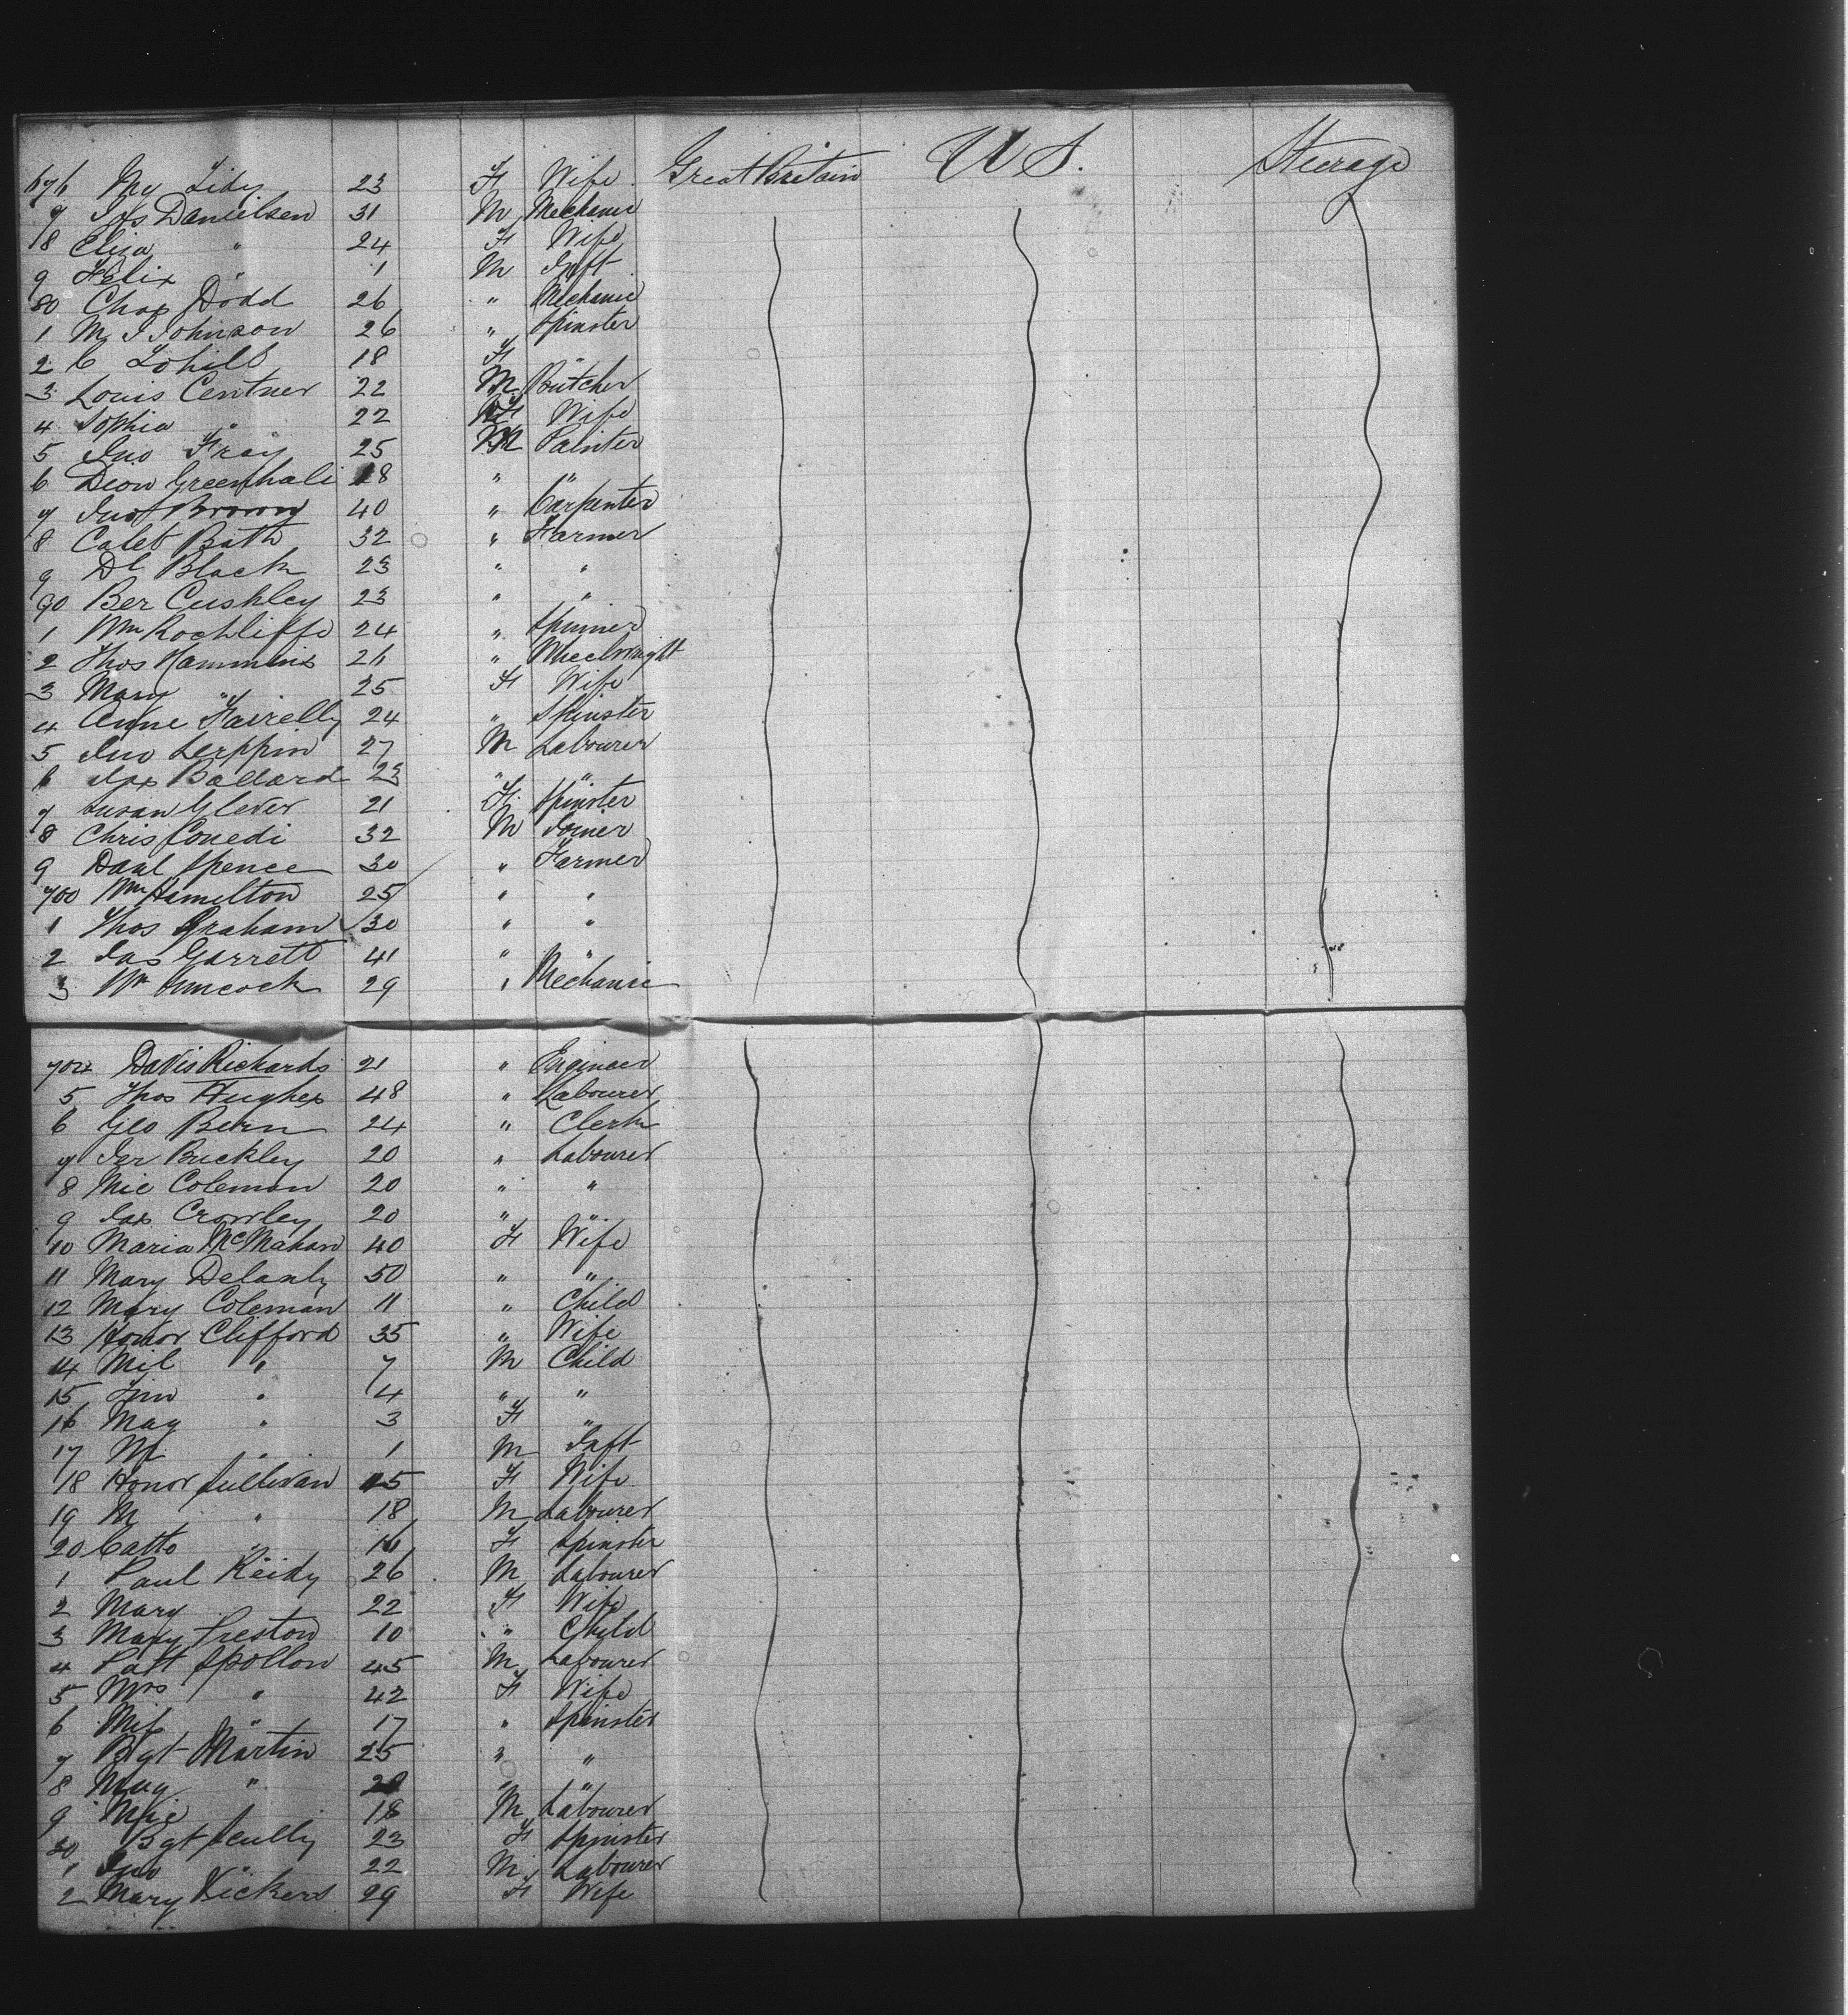 676 My Lidy 23 F Wife Great Britain U S. Steerage
7 Jas Danielsen 31 M Mechanic
78 Eliza " 24 F Wife
9 Felix " 1 M Inft
80 Chas Dodd 26 " Mechanic
1 M J Johnson 26 " Spinster
2 C Lohill 18 F "
3 Louis Centner 22 M Butcher
4 Sophia " 22 F Wife
5 Jno Fray 25 M Painter
6 Dion Greenhali 18 " "
7 Jno Brown 40 " Carpenter
8 Caleb Bath 32 " Farmer
9 Dl Black 23 " "
90 Ber Cushley 23 " "
1 Wm Rochliffe 24 " Spinner
2 Thos Hammins 26 " Wheelwright
3 Mary " 25 F Wife
4 Anne Fairelly 24 " Spinster
5 Jno Lerppin 27 M Labourer
6 Jas Ballard 23 " "
7 Susan Glever 21 F Spinster
8 Chris Conedi 32 M Joiner
9 Danl Spence 30 " Farmer
700 Wm Hamilton 25 " "
1 Thos Graham 30 " "
2 Jas Garrett 41 " "
3 Wm Hancock 29 " Mechanic
704 Davis Richards 21 " Engineer
5 Thos Hughes 48 " Labourer
6 Geo Bern 24 " Clerk
7 Jer Buckley 20 " Labourer
8 Mic Coleman 20 " "
9 Jas Crowley 20 " "
10 Maria McMahon 40 F Wife
11 Mary Delanly 50 " "
12 Mary Coleman 11 " Child
13 Honor Clifford 35 " Wife
14 Mil " 7 M Child
15 Tim " 4 " "
16 May " 3 F "
17 M " 1 M Inft
18 Honor Sullivan 45 F Wife
19 M " 18 M Labourer
20 Catto " 16 F Spinster
1 Paul Reidy 26 M Labourer
2 Mary 22 F Wife
3 Mary Preston 10 " Child
4 Patt Spollon 45 M Labourer
5 Mrs " 42 F Wife
6 Miss " 17 " Spinster
7 Bgt Martin 25 " "
8 May " 20 " "
9 Mic " 18 M Labourer
30 Bgt Scully 23 F Spinster
1 Jno " 22 M Labourer
2 Mary Vickers 29 F Wife